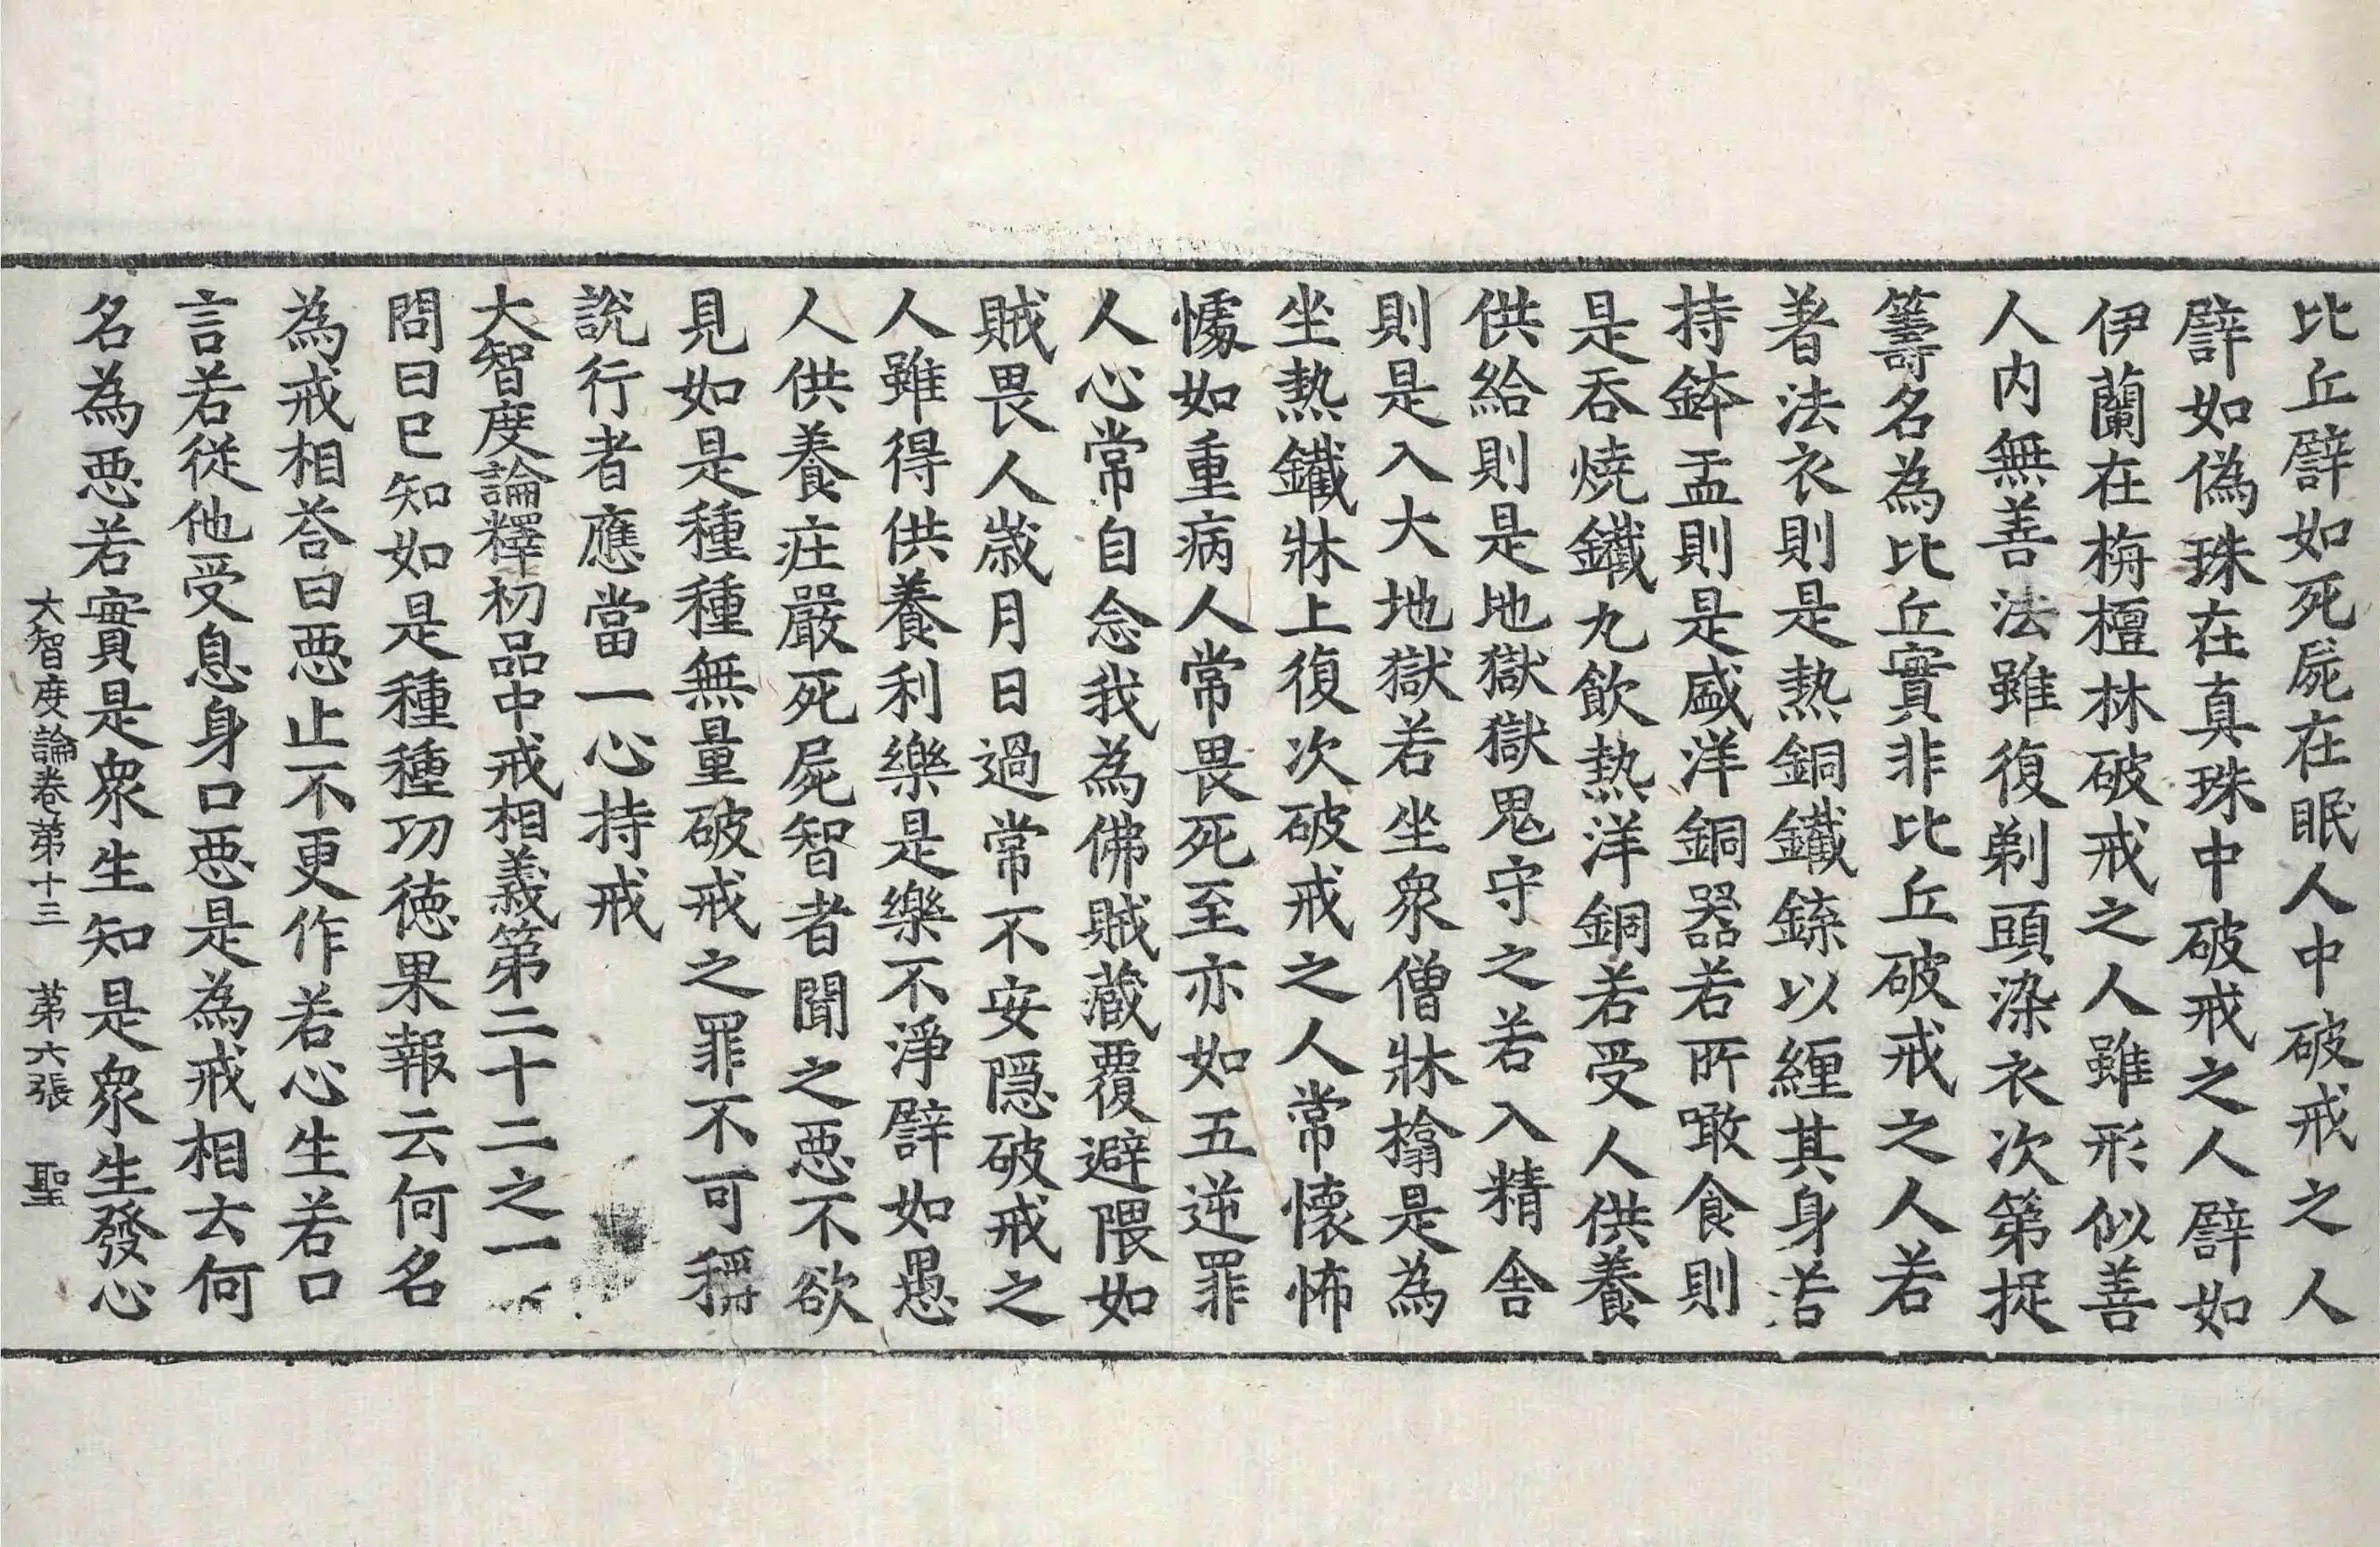 比丘譬如死屍在眠人中破戒之人
譬如偽珠在真珠中破戒之人譬如
伊蘭在栴檀林破戒之人雖形似善
人内無善法雖復剃頭染衣次第捉
籌名為比丘實非比丘破戒之人若
著法衣則是熱銅鐵鍱以纏其身若
持鉢盂則是盛洋銅器若所噉食則
是吞燒鐵丸飲熱洋銅若受人供養
供給則是地獄獄鬼守之若入精舍
則是入大地獄若坐衆僧牀榻是為
坐熱鐵牀上復次破戒之人常懷怖
懅如重病人常畏死至亦如五逆罪
人心常自念我為佛賊藏覆避隈如
賊畏人歲月日過常不安隱破戒之
人雖得供養利樂是樂不淨譬如愚
人供養莊嚴死屍智者聞之惡不欲
見如是種種無量破戒之罪不可稱
說行者應當一心持戒
大智度論釋初品中戒相義第二十二之一
問曰已知如是種種功德果報云何名
為戒相荅曰惡止不更作若心生若口
言若從他受息身口惡是為戒相云何
名為惡若實是衆生知是衆生發心
大智度論卷第十三 第六張 聖